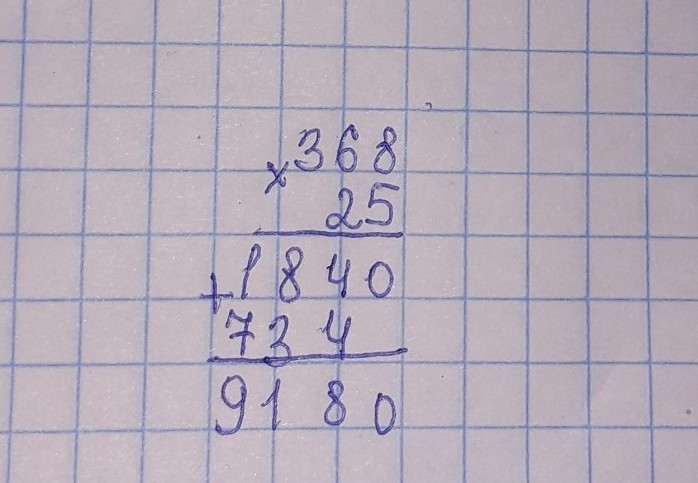 × 368
25
+ 1840
734
9180